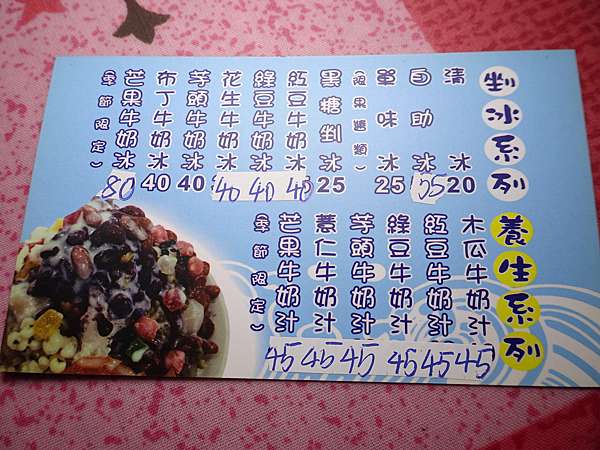 剉冰系列
清冰20
自助冰35
單味冰25
(限果醬類)
黑糖剉冰25
紅豆牛奶冰40
綠豆牛奶冰40
花生牛奶冰40
芋頭牛奶冰40
布丁牛奶冰40
芒果牛奶冰80
(季節限定)
養生系列
木瓜牛奶汁45
紅豆牛奶汁45
綠豆牛奶汁45
芋頭牛奶汁45
薏仁牛奶汁45
芒果牛奶汁45
(季節限定)